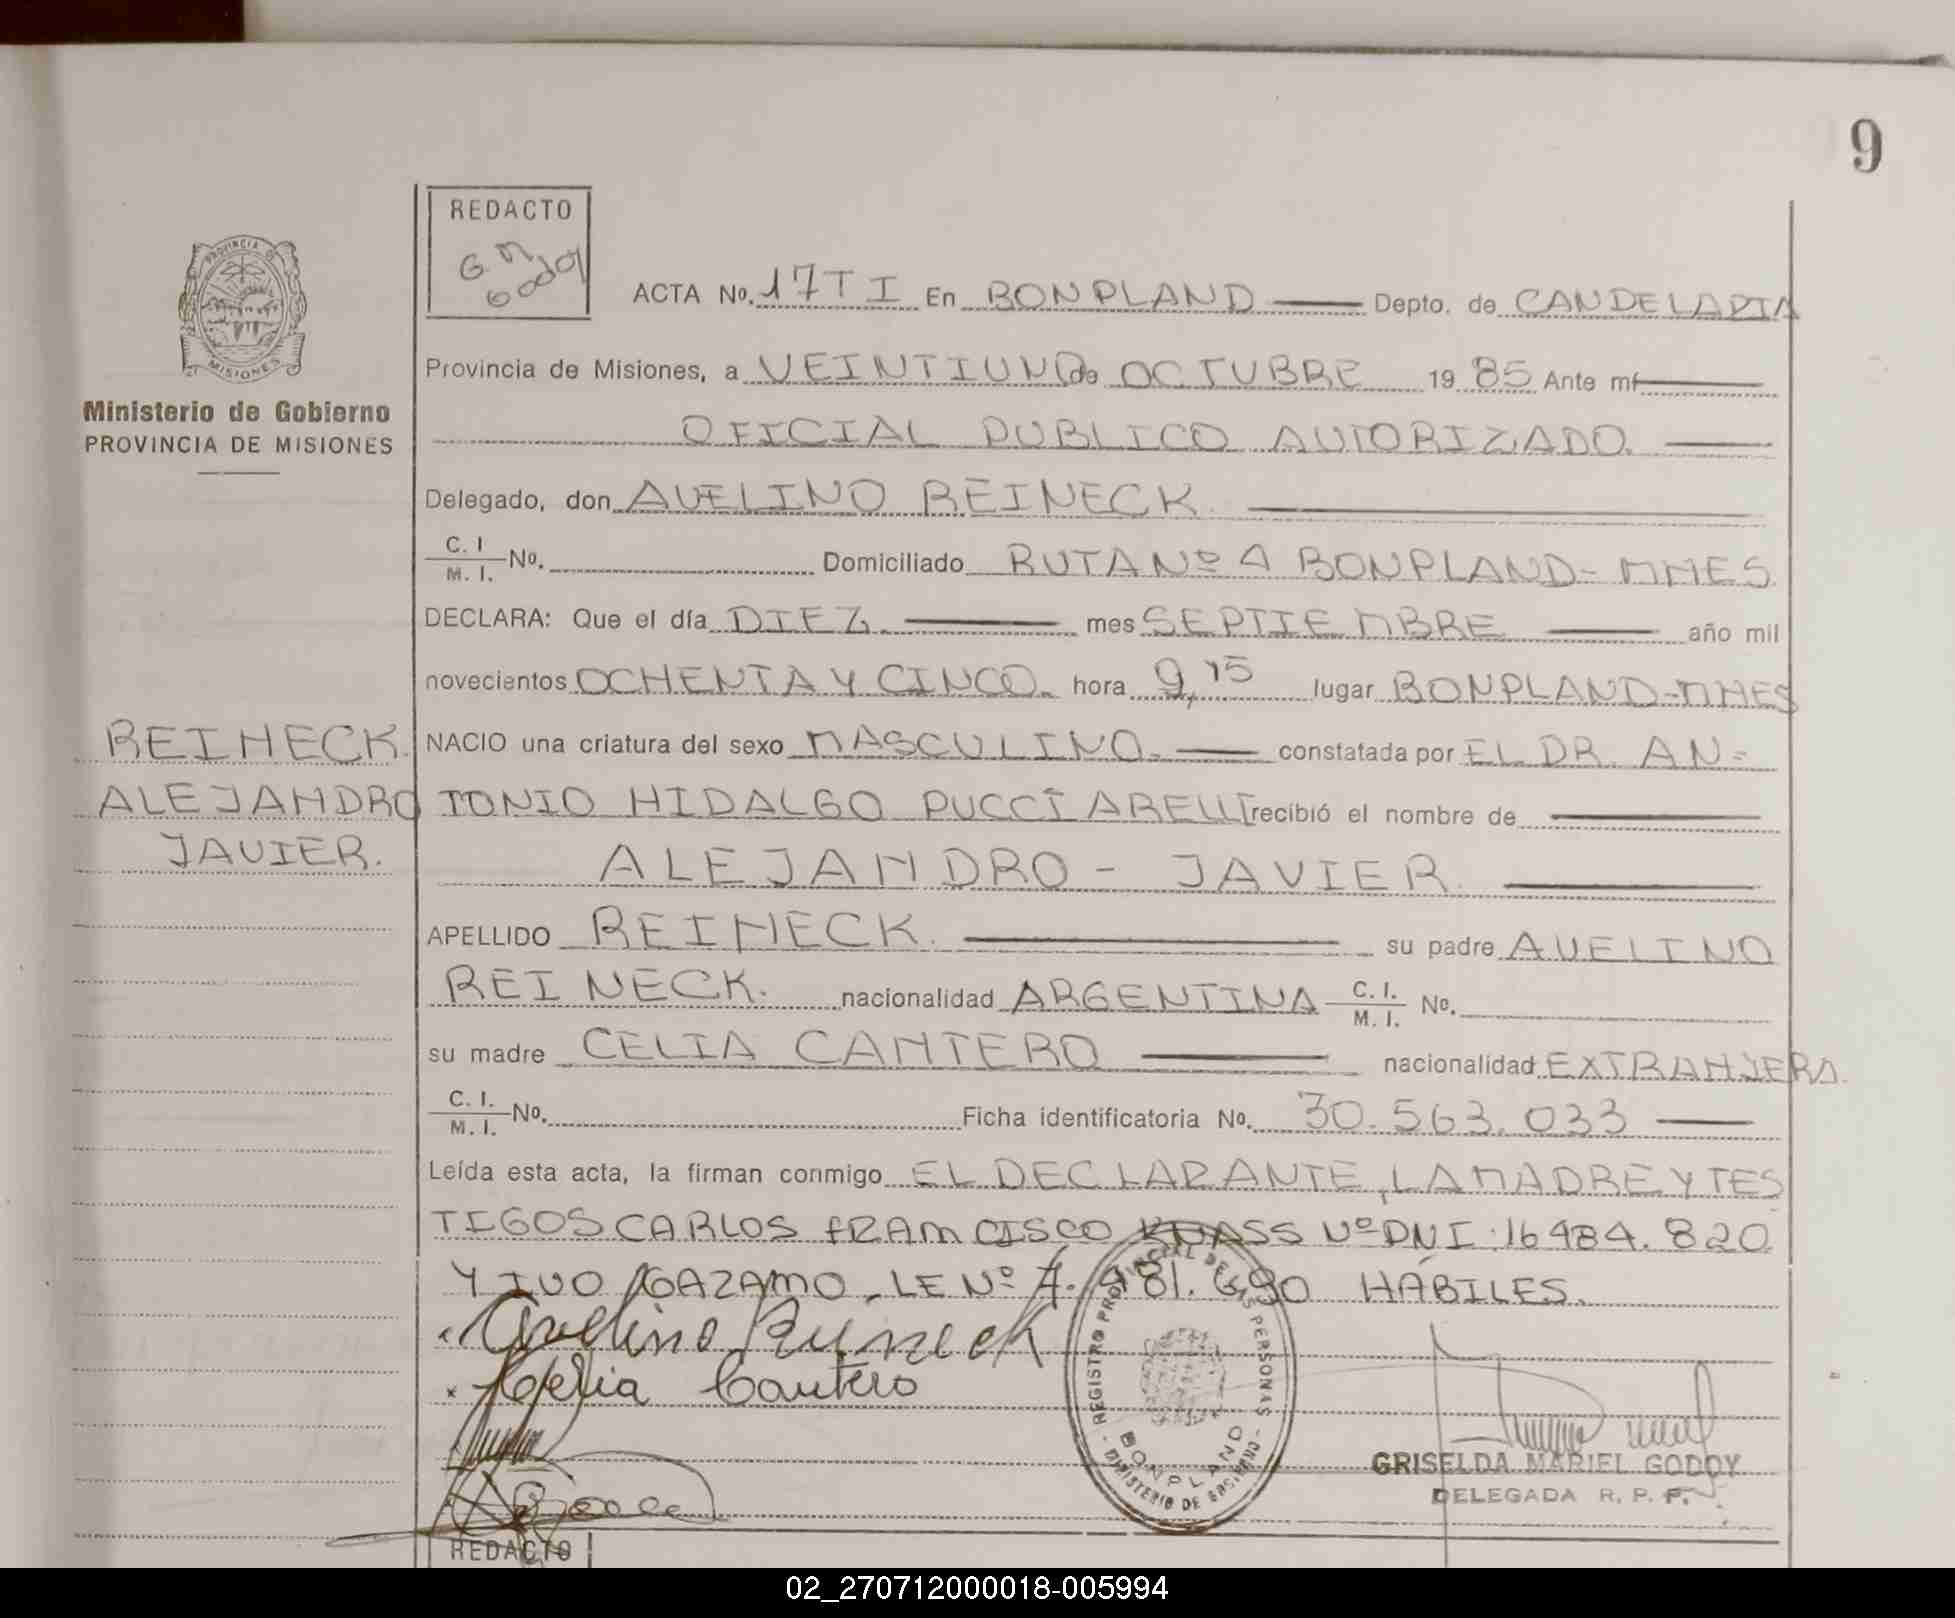 9
REDACTO
G M
Godoy
PROVINCIA DE
MISIONES
Ministerio de Gobierno
PROVINCIA DE MISIONES
ACTA No. 17 T I En BONPLAND Depto. de CANDELARIA
Provincia de Misiones, a VEINTIUNO de OCTUBRE 19 85 Ante mí
OFICIAL PUBLICO AUTORIZADO.
Delegado, don AVELINO REINECK.
C. I. / M. I. No. Domiciliado RUTA Nº 4 BONPLAND - MNES.
DECLARA: Que el día DIEZ. mes SEPTIEMBRE año mil
novecientos OCHENTA Y CINCO. hora 9,15 lugar BONPLAND - MNES
REINECK.
ALEJANDRO
JAVIER.
NACIO una criatura del sexo MASCULINO. constatada por EL DR. AN=
TONIO HIDALGO PUCCIARELLI recibió el nombre de
ALEJANDRO - JAVIER.
APELLIDO REINECK. su padre AVELINO
REINECK. nacionalidad ARGENTINA C. I. / M. I. No.
su madre CELIA CANTERO nacionalidad EXTRANJERA.
C. I. / M. I. No. Ficha identificatoria No. 30.563.033
Leída esta acta, la firman conmigo EL DECLARANTE, LA MADRE Y TES
TIGOS CARLOS FRANCISCO Nº DNI: 16484.820
Y IVO LE Nº 7. 481.690 HÁBILES.
Avelino Reineck
Celia Cantero
REGISTRO PROVINCIAL DE LAS PERSONAS
BONPLAND
MINISTERIO DE GOBIERNO
GRISELDA MARIEL GODOY
DELEGADA R. P. P.
REDACTO
02_270712000018-005994